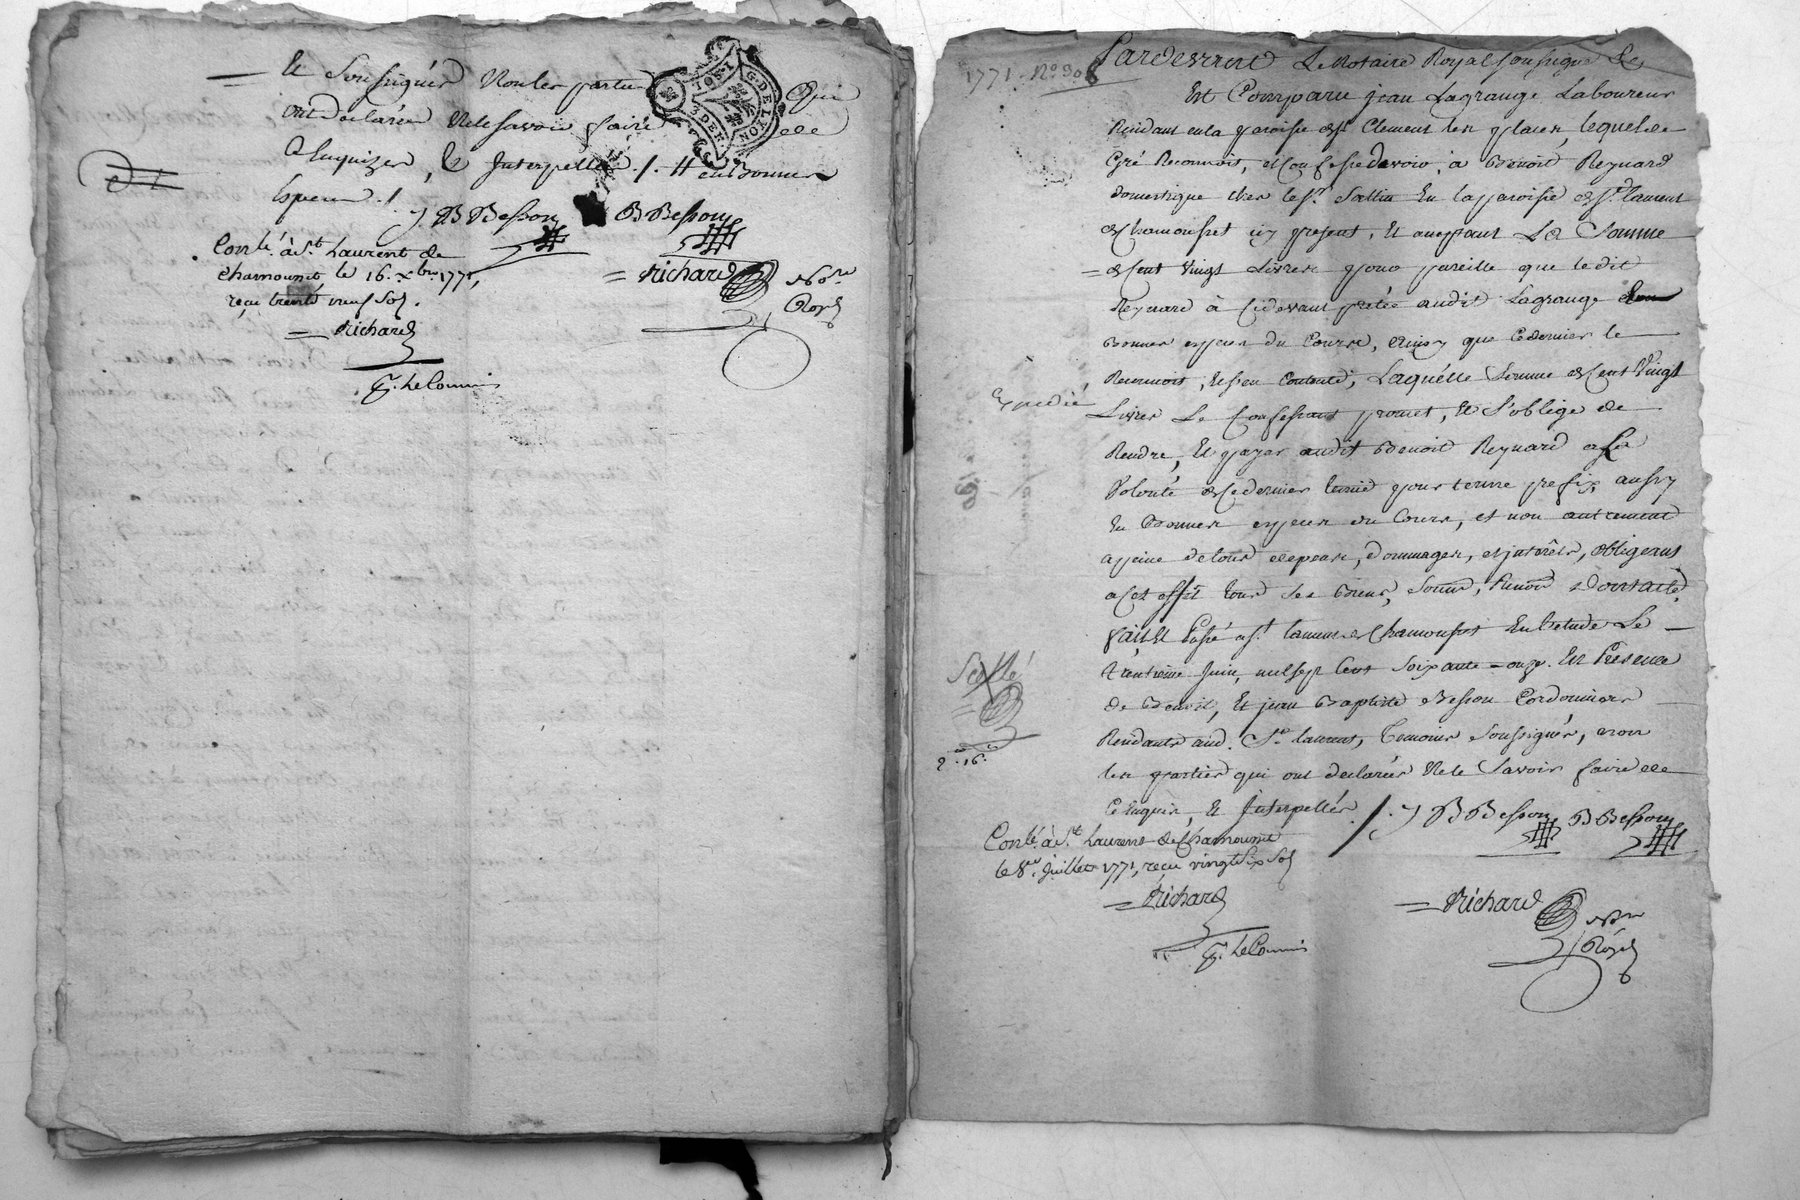 Et Soussignés Non les parties Qui
ont declarés Ne le savoir faire de
Ce enquizes, & Interpellés ./. # en donner
Especes ./.
J B Besson B Besson
Conté. à St. Laurent de
chamousset, le 16. Xbre 1771,
reçu trente neuf Sols.
Richard
Richard No.re
Royal
TOR.I G.DE LYON
3 DEN
1771. No. 30
Pardevant Le Notaire Royal soussigné &
Est Comparu jean Lagrange Laboureur
Residant en la paroisse de St. Clement les places, lequel de
Gré Reconnoit, et confesse devoir, à Benoit Reynard
domestique chez le Sr. Sallin En la paroisse de St. laurent
de Chamousset icy present, Et acceptant La Somme
de Cent Vingt Livres pour pareille que ledit
Reynard à Cidevant pretée audit Lagrange
bonnes especes du Cours, Ainsy que Ce dernier le
Reconnoit, Et s'en Contente, Laquelle Somme de Cent Vingt
Expedié
Livres Le Confessant promet, Et S'oblige de
Rendre, Et payer audit Benoit Reynard à La
Volonté de Ce dernier pour terme prefix, aussy
En Bonnes especes du Cours, et non autrement
a peine de tous depens, dommages, et interêts, obligeant
a Cet effet tous ses biens, Soum, Renon Dont acte,
fait, Et Passé a St. laurent de Chamousset En L'etude Le
trentieme Juin, mil sept Cent Soixante - onze. En Presence
Scellé
de Benoit, Et jean Baptiste Besson Cordonniers
Residants aud. St. laurent, Temoins Soussignés, non
2. 16.
les parties qui ont declarés Ne le Savoir faire de
Ce enquis, Et Interpellés ./.
J B Besson B Besson
Conté. à St. Laurent de Chamousset
le 8e. Juillet 1771, reçu vingt Six Sols
Richard
Richard No.re
Royal